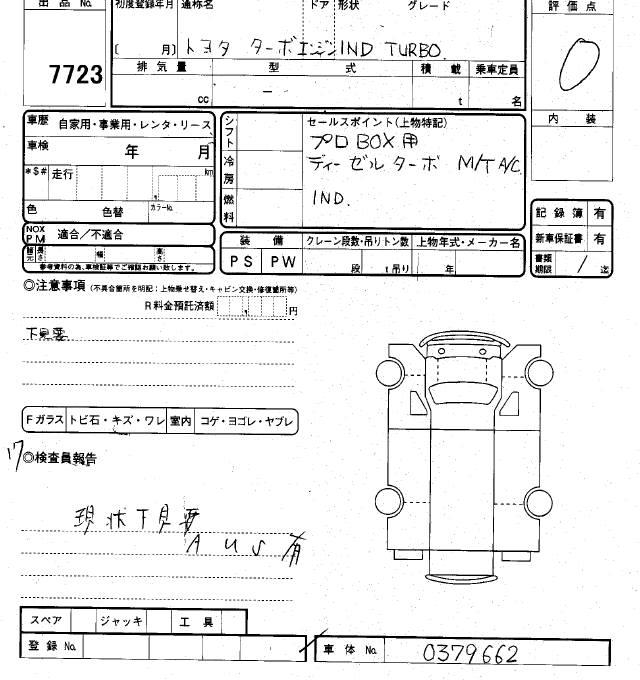 出品 No.
初度登録年月 通称名 ドア 形状 グレード
評価点
( 月) トヨタ ターボエンジン IND TURBO
0
7723
排気量 型式 積載 乗車定員
cc － t 名
車歴 自家用・事業用・レンタ・リース
車検 年 月
*$# 走行 km
色 色替 カラーNo.
NOX PM 適合/不適合
諸元 長さ 幅 高さ
参考資料の為、車検証等でご確認お願い致します。
シフト
冷房
燃料
セールスポイント(上物特記)
プロBOX用
ディーゼルターボ M/T A/C
IND.
内装
装備 クレーン段数・吊りトン数 上物年式・メーカー名
PS PW 段 t吊り 年
記録簿 有
新車保証書 有
書類期限 / 迄
◎注意事項 (不具合箇所を明記:上物乗せ替え・キャビン交換・修復箇所等)
R料金預託済額 円
下見要
Fガラス トビ石・キズ・ワレ 室内 コゲ・ヨゴレ・ヤブレ
◎検査員報告
現状下見要
AUS有
スペア ジャッキ 工具
登録 No.
車体 No. 0379662